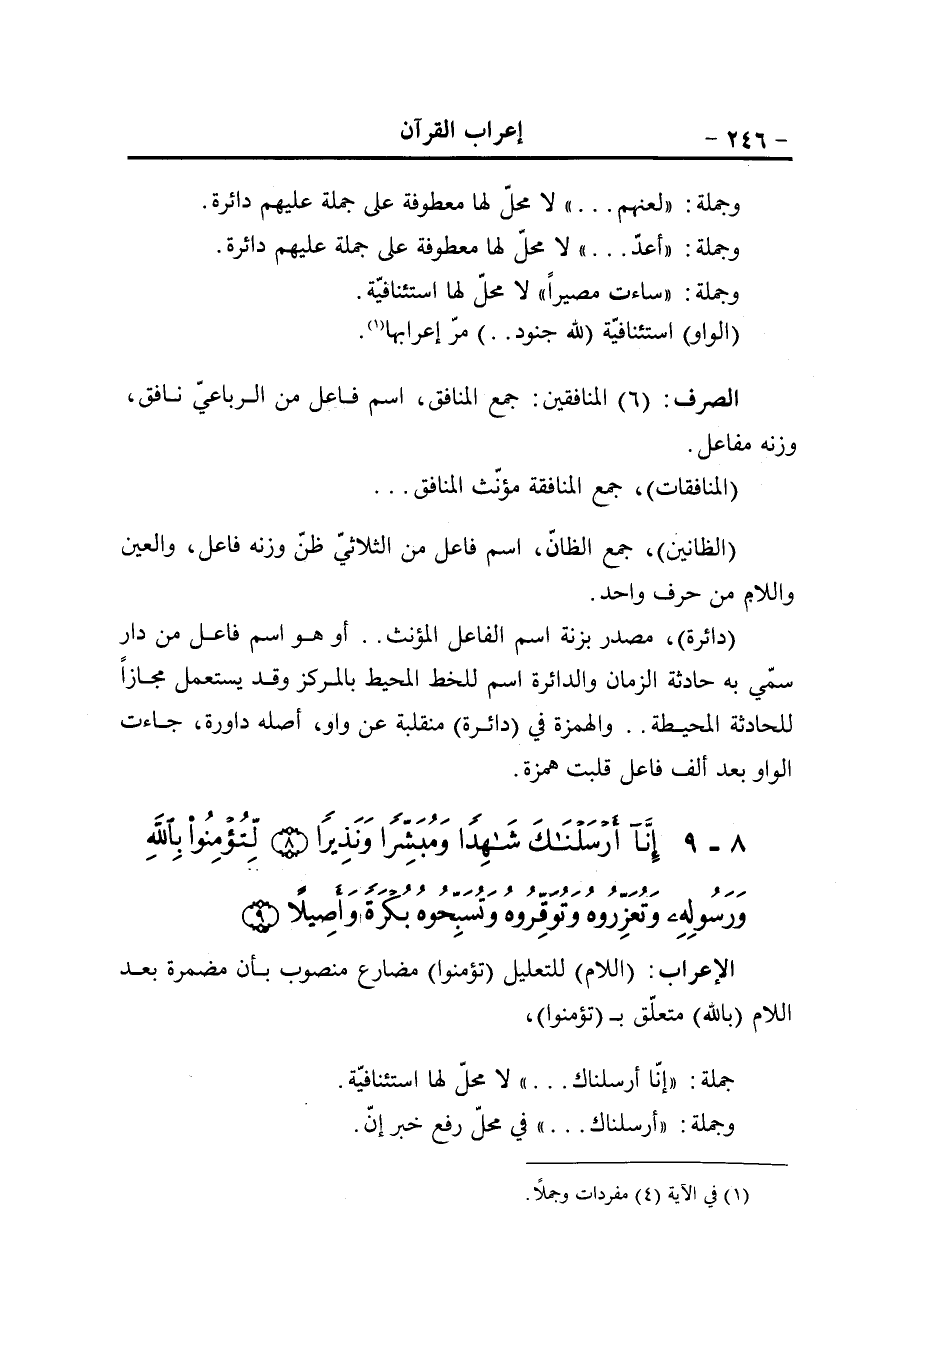 - ٢٤٦ - إعراب القرآن
وجملة: «لعنهم...» لا محلّ لها معطوفة على جملة عليهم دائرة.
وجملة: «أعدّ...» لا محلّ لها معطوفة على جملة عليهم دائرة.
وجملة: «ساءت مصيراً» لا محلّ لها استئنافيّة.
(الواو) استئنافيّة (لله جنود..) مرّ إعرابها(١).
الصرف: (٦) المنافقين: جمع المنافق، اسم فاعل من الرباعيّ نافق،
وزنه مفاعل.
(المنافقات)، جمع المنافقة مؤنّث المنافق...
(الظانين)، جمع الظانّ، اسم فاعل من الثلاثيّ ظنّ وزنه فاعل، والعين
واللام من حرف واحد.
(دائرة)، مصدر بزنة اسم الفاعل المؤنث.. أو هو اسم فاعل من دار
سمّي به حادثة الزمان والدائرة اسم للخط المحيط بالمركز وقد يستعمل مجازاً
للحادثة المحيطة.. والهمزة في (دائرة) منقلبة عن واو، أصله داورة، جاءت
الواو بعد ألف فاعل قلبت همزة.
٨ - ٩ إِنَّآ أَرْسَلْنَـٰكَ شَـٰهِدًا وَمُبَشِّرًا وَنَذِيرًا ﴿٨﴾ لِّتُؤْمِنُوا۟ بِٱللَّهِ
وَرَسُولِهِۦ وَتُعَزِّرُوهُ وَتُوَقِّرُوهُ وَتُسَبِّحُوهُ بُكْرَةً وَأَصِيلًا ﴿٩﴾
الإعراب: (اللام) للتعليل (تؤمنوا) مضارع منصوب بأن مضمرة بعد
اللام (بالله) متعلّق بـ (تؤمنوا)،
جملة: «إنّا أرسلناك...» لا محلّ لها استئنافيّة.
وجملة: «أرسلناك...» في محلّ رفع خبر إنّ.
(١) في الآية (٤) مفردات وجملًا.